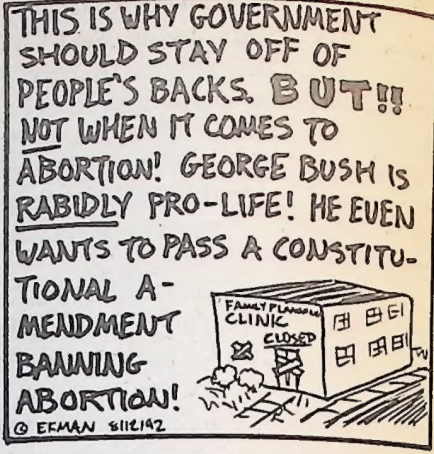 THIS IS WHY GOVERNMENT
SHOULD STAY OFF OF
PEOPLE'S BACKS. BUT!!
NOT WHEN IT COMES TO
ABORTION! GEORGE BUSH IS
RABIDLY PRO-LIFE! HE EVEN
WANTS TO PASS A CONSTITU-
TIONAL A-
MENDMENT
BANNING
ABORTION!
FAMILY PLANNING
CLINIC
CLOSED
© EKMAN 8/12/92